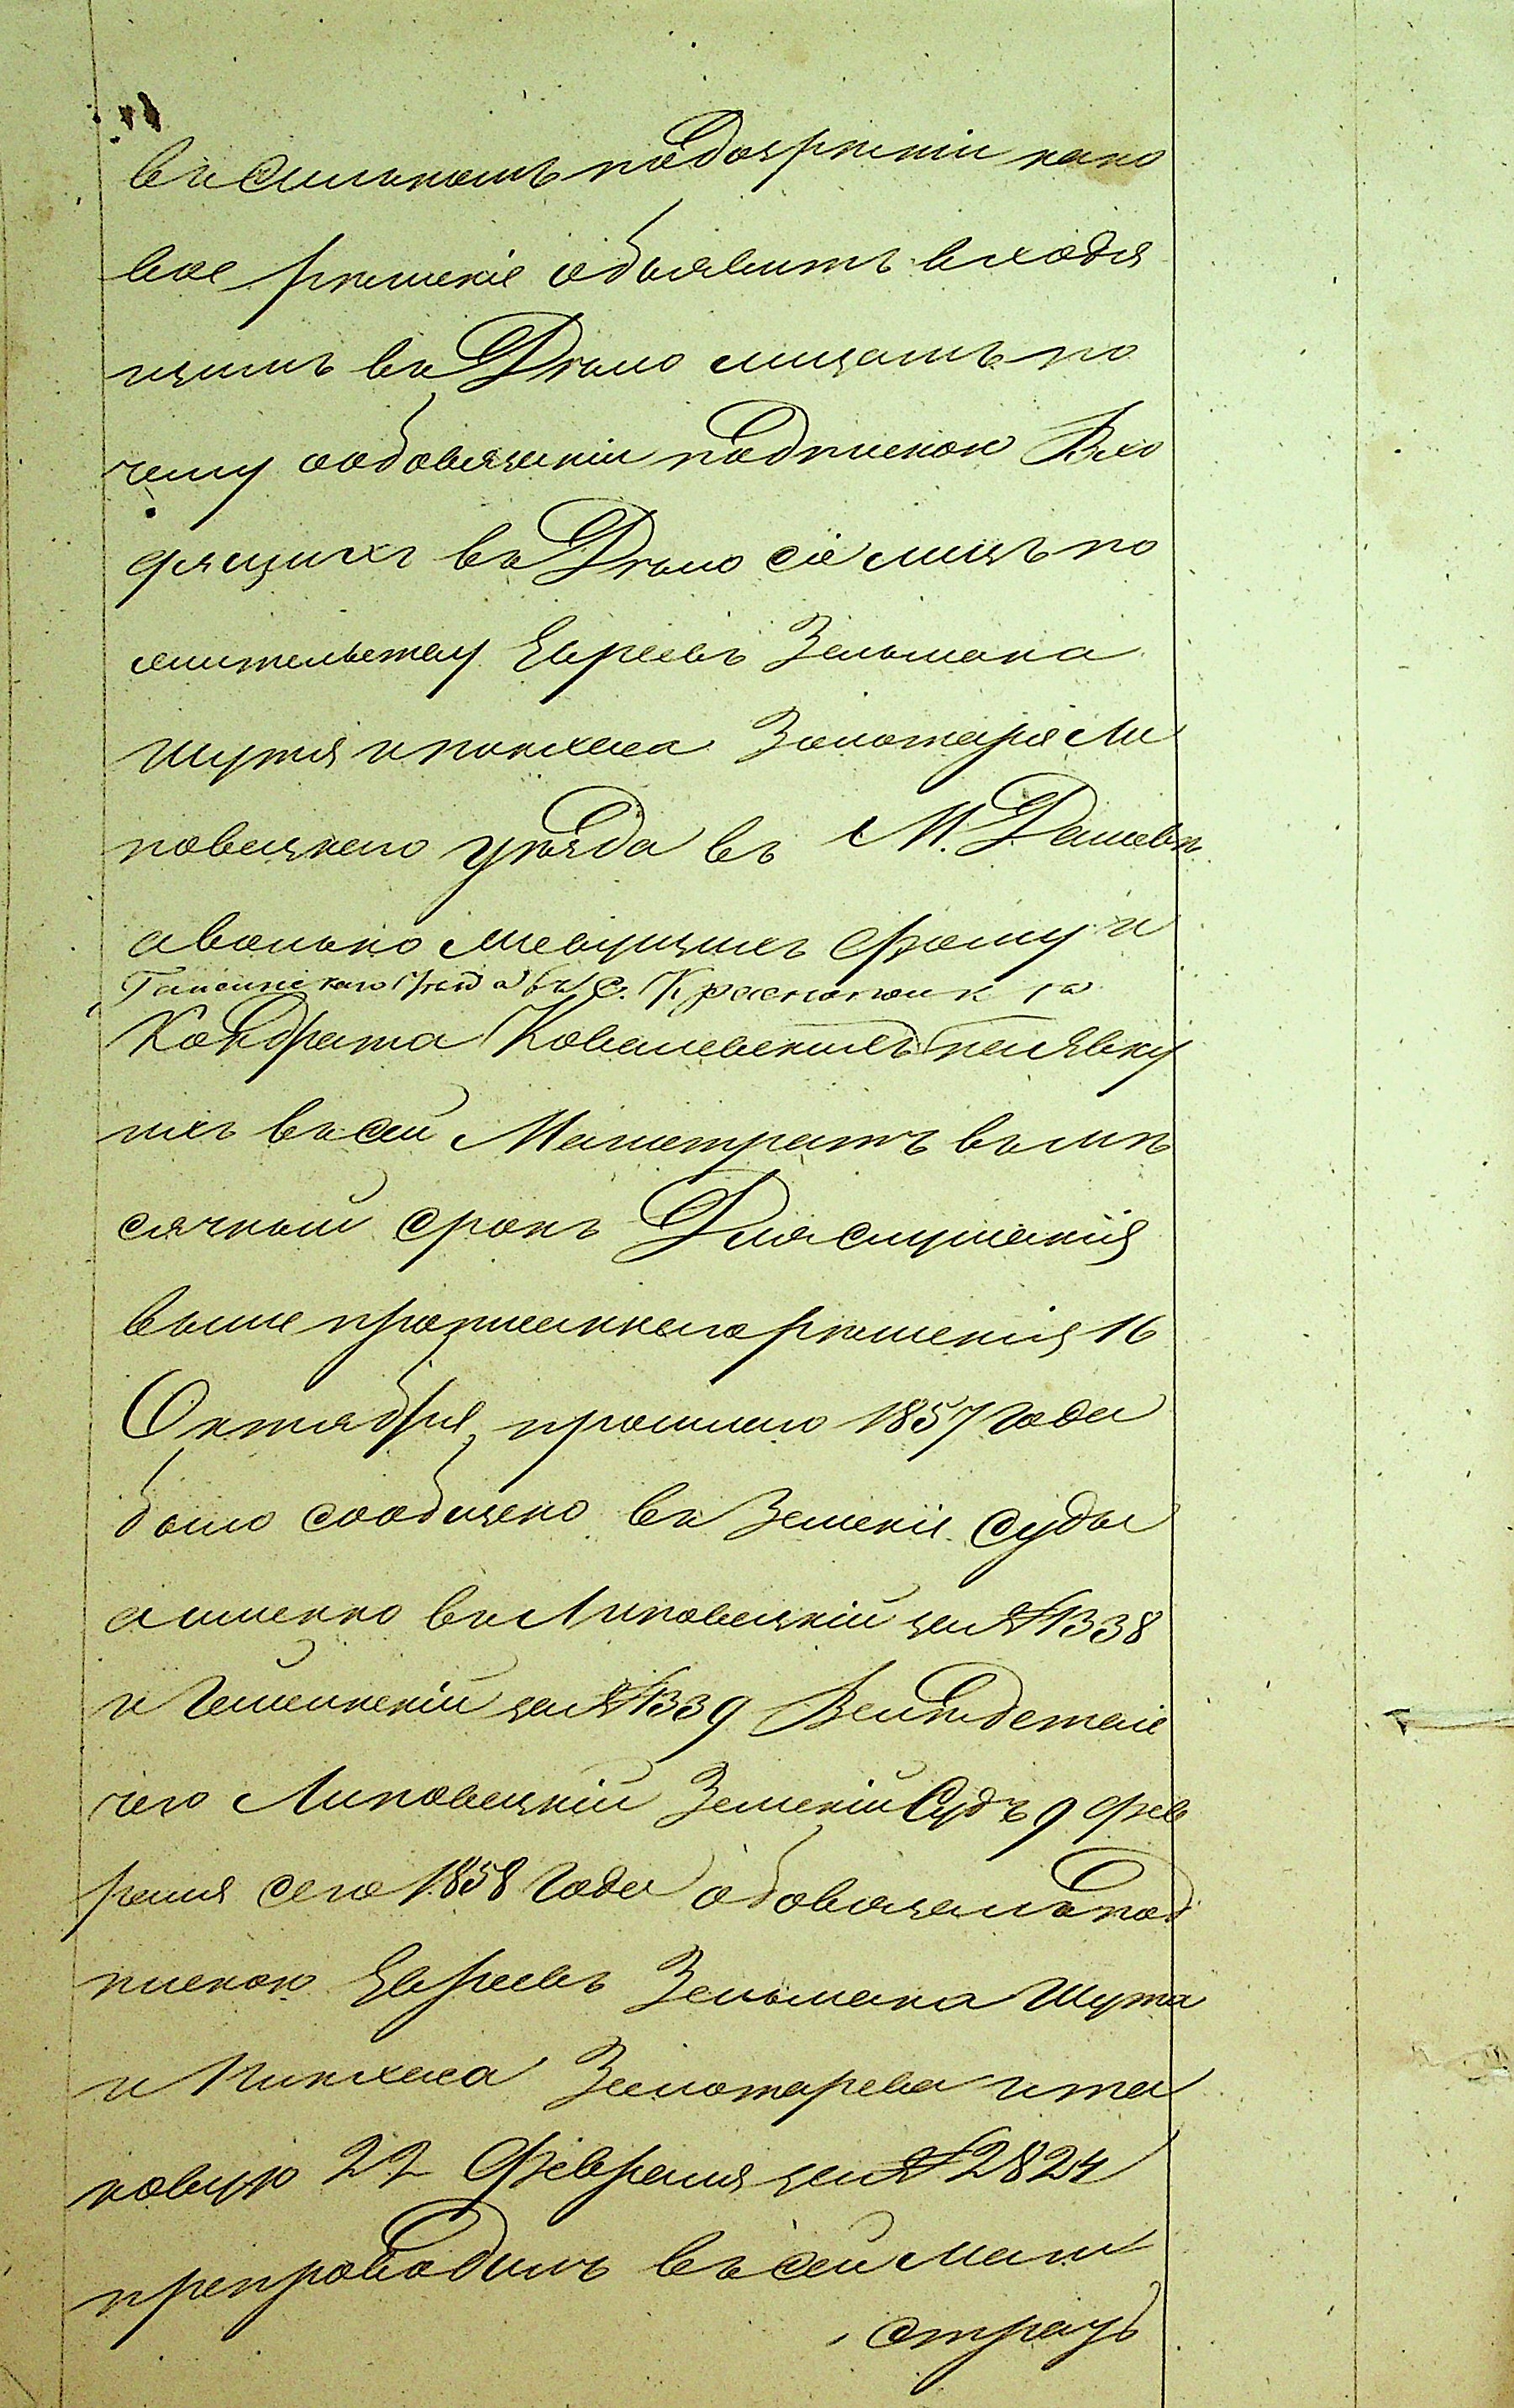 въ сильномъ подозрѣніи како
вое рѣшеніе объявить входя
щимъ въ Дѣло лицамъ по
чему ообовязаніи подпискою Вхо
дящихъ въ Дѣло сіе лицъ по
жительству Евреевъ Зельмана
Шутя и пинхаса Золотаря Ли
повецкаго уѣзда въ М. Дашевѣ
авольно живущихъ Фому и
Гайсинскаго уѣзда въ с. Краснополкѣ
Кондрата Ковалевскихъ на явку
ихъ въ сей Магистратъ въ мѣ
сячный срокъ Для слушанія
выше прописаннаго рѣшенія 16
Октября прошлаго 1857 года
было сообщено въ Земскіе суды
а именно въ Липовецкій за № 1338
и Гайсинскій за № 1339 Вслѣдствіе
чего Липовецкій Земскій Судъ 9 Фев
раля сего 1858 года обовязалъ под
пискою Евреевъ Зельмана Шутя
и Пинхаса Золотарева и та
ковую 22 Февраля за № 2824
препроводилъ въ сей Маги
стратъ